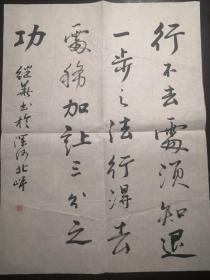 行不去處須知退
一步之法行得去
處務加讓三分之
功
繼華书於渾河北岸